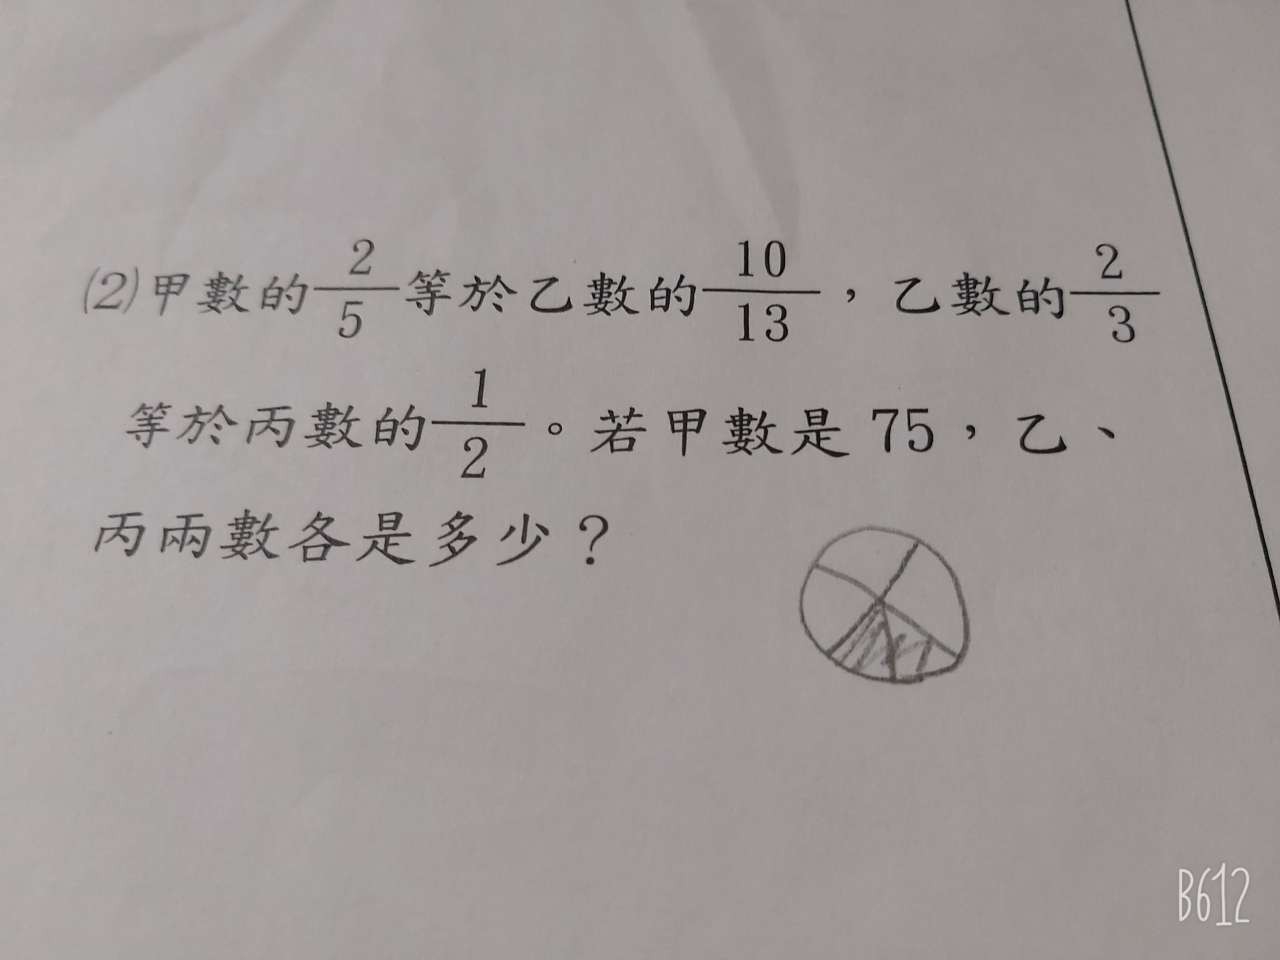 (2)甲數的2/5等於乙數的10/13，乙數的2/3
等於丙數的1/2。若甲數是75，乙、
丙兩數各是多少？
B612